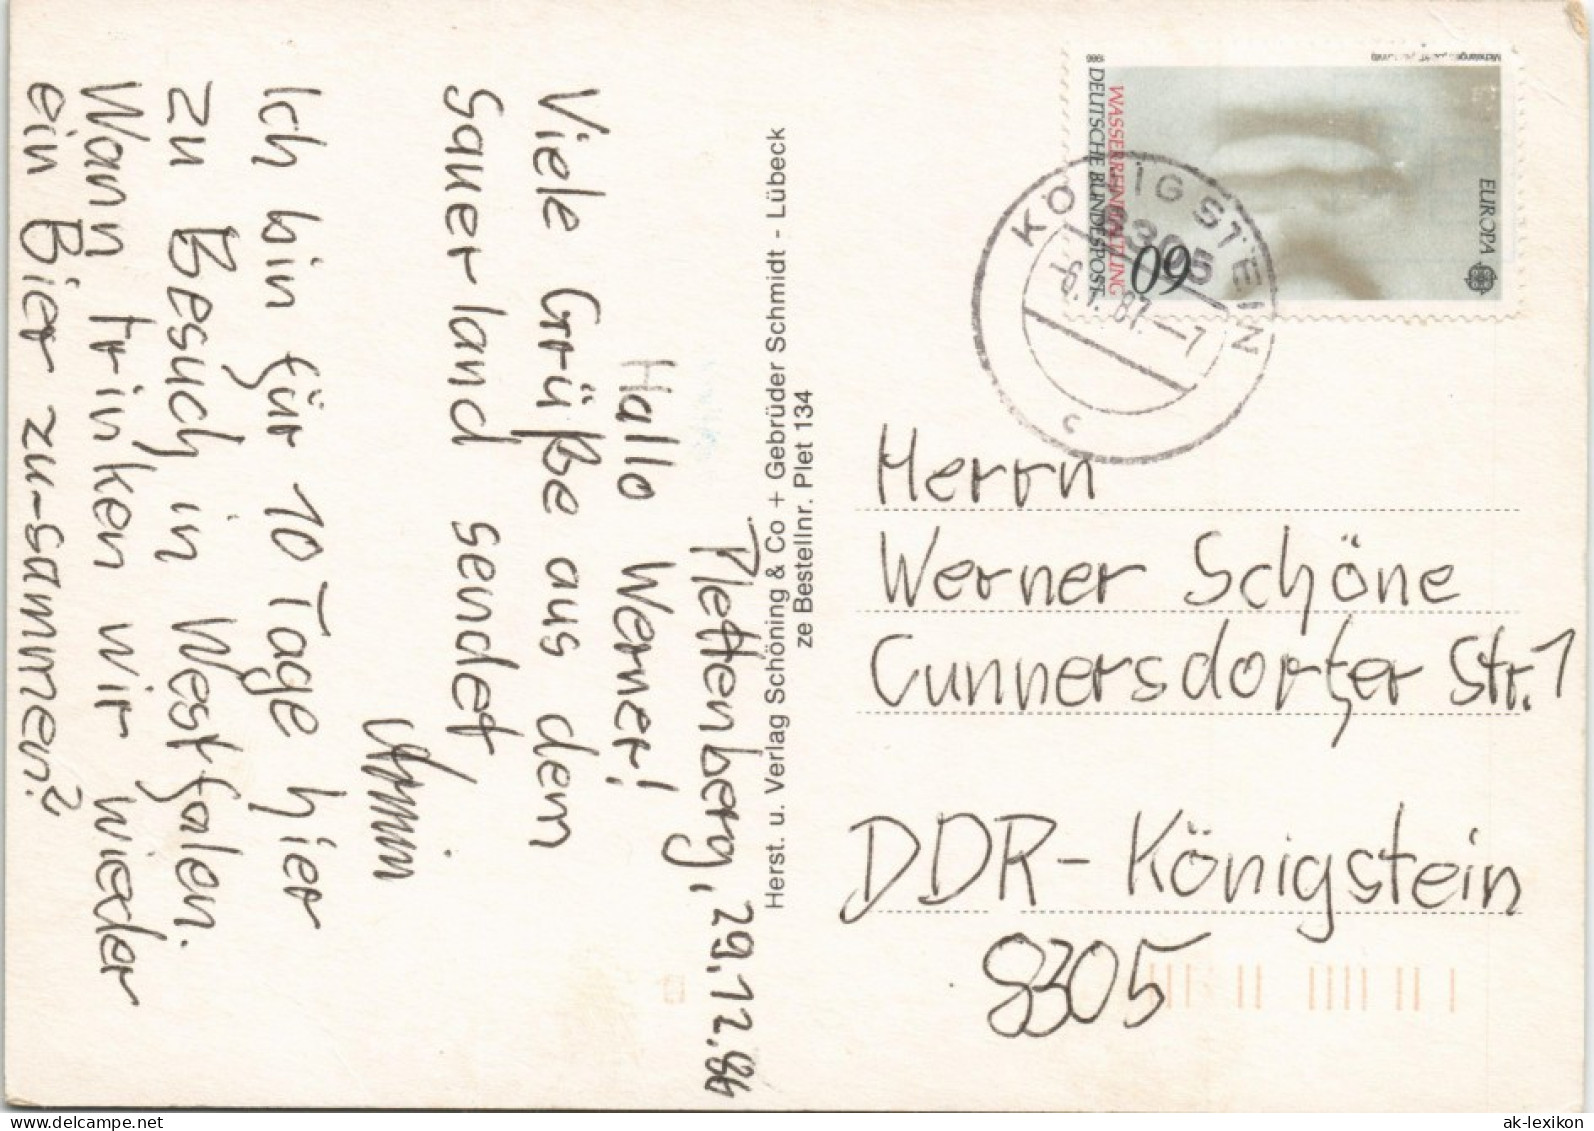 Plettenberg, 29.12.86
Hallo Werner!
Viele Grüße aus dem
Sauerland sendet
Armin
Ich bin für 10 Tage hier
zu Besuch in Westfalen.
Wann trinken wir wieder
ein Bier zu-sammen?
Herst. u. Verlag Schöning & Co + Gebrüder Schmidt - Lübeck
ze Bestellnr. Plet 134
1986
DEUTSCHE BUNDESPOST
WASSERREINHALTUNG
60
EUROPA
KÖNIGSTEIN
8305
-6.1.87.-7
c
Herrn
Werner Schöne
Cunnersdorfer Str. 1
DDR-Königstein
8305
ak-lexikon